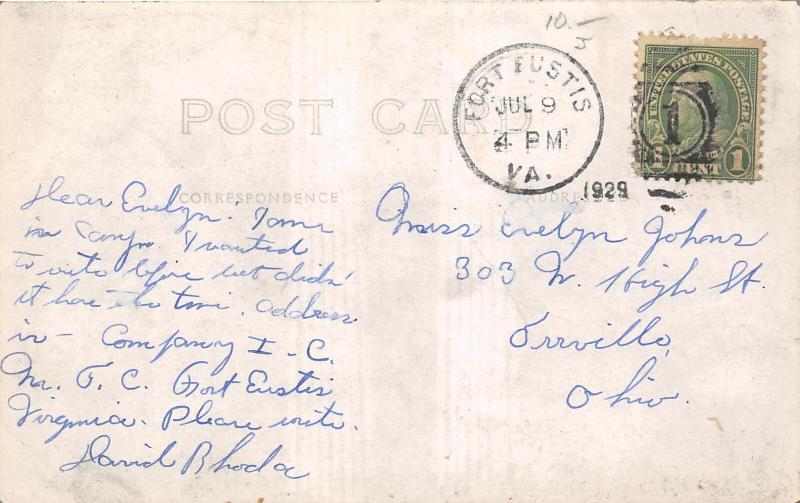 10-/5
FORT EUSTIS
JUL 9
4 PM
VA.
1929
UNITED STATES POSTAGE
1
1
POST CARD
CORRESPONDENCE
ADDRESS
Dear Evelyn. I am
in Camp. I wanted
to write before but didn'
t have the time. Address
is - Company I - C.
M. T. C. Fort Eustis
Virginia. Please write.
David Rhoda
Miss Evelyn Johns
303 N. High St.
Orrville,
Ohio.